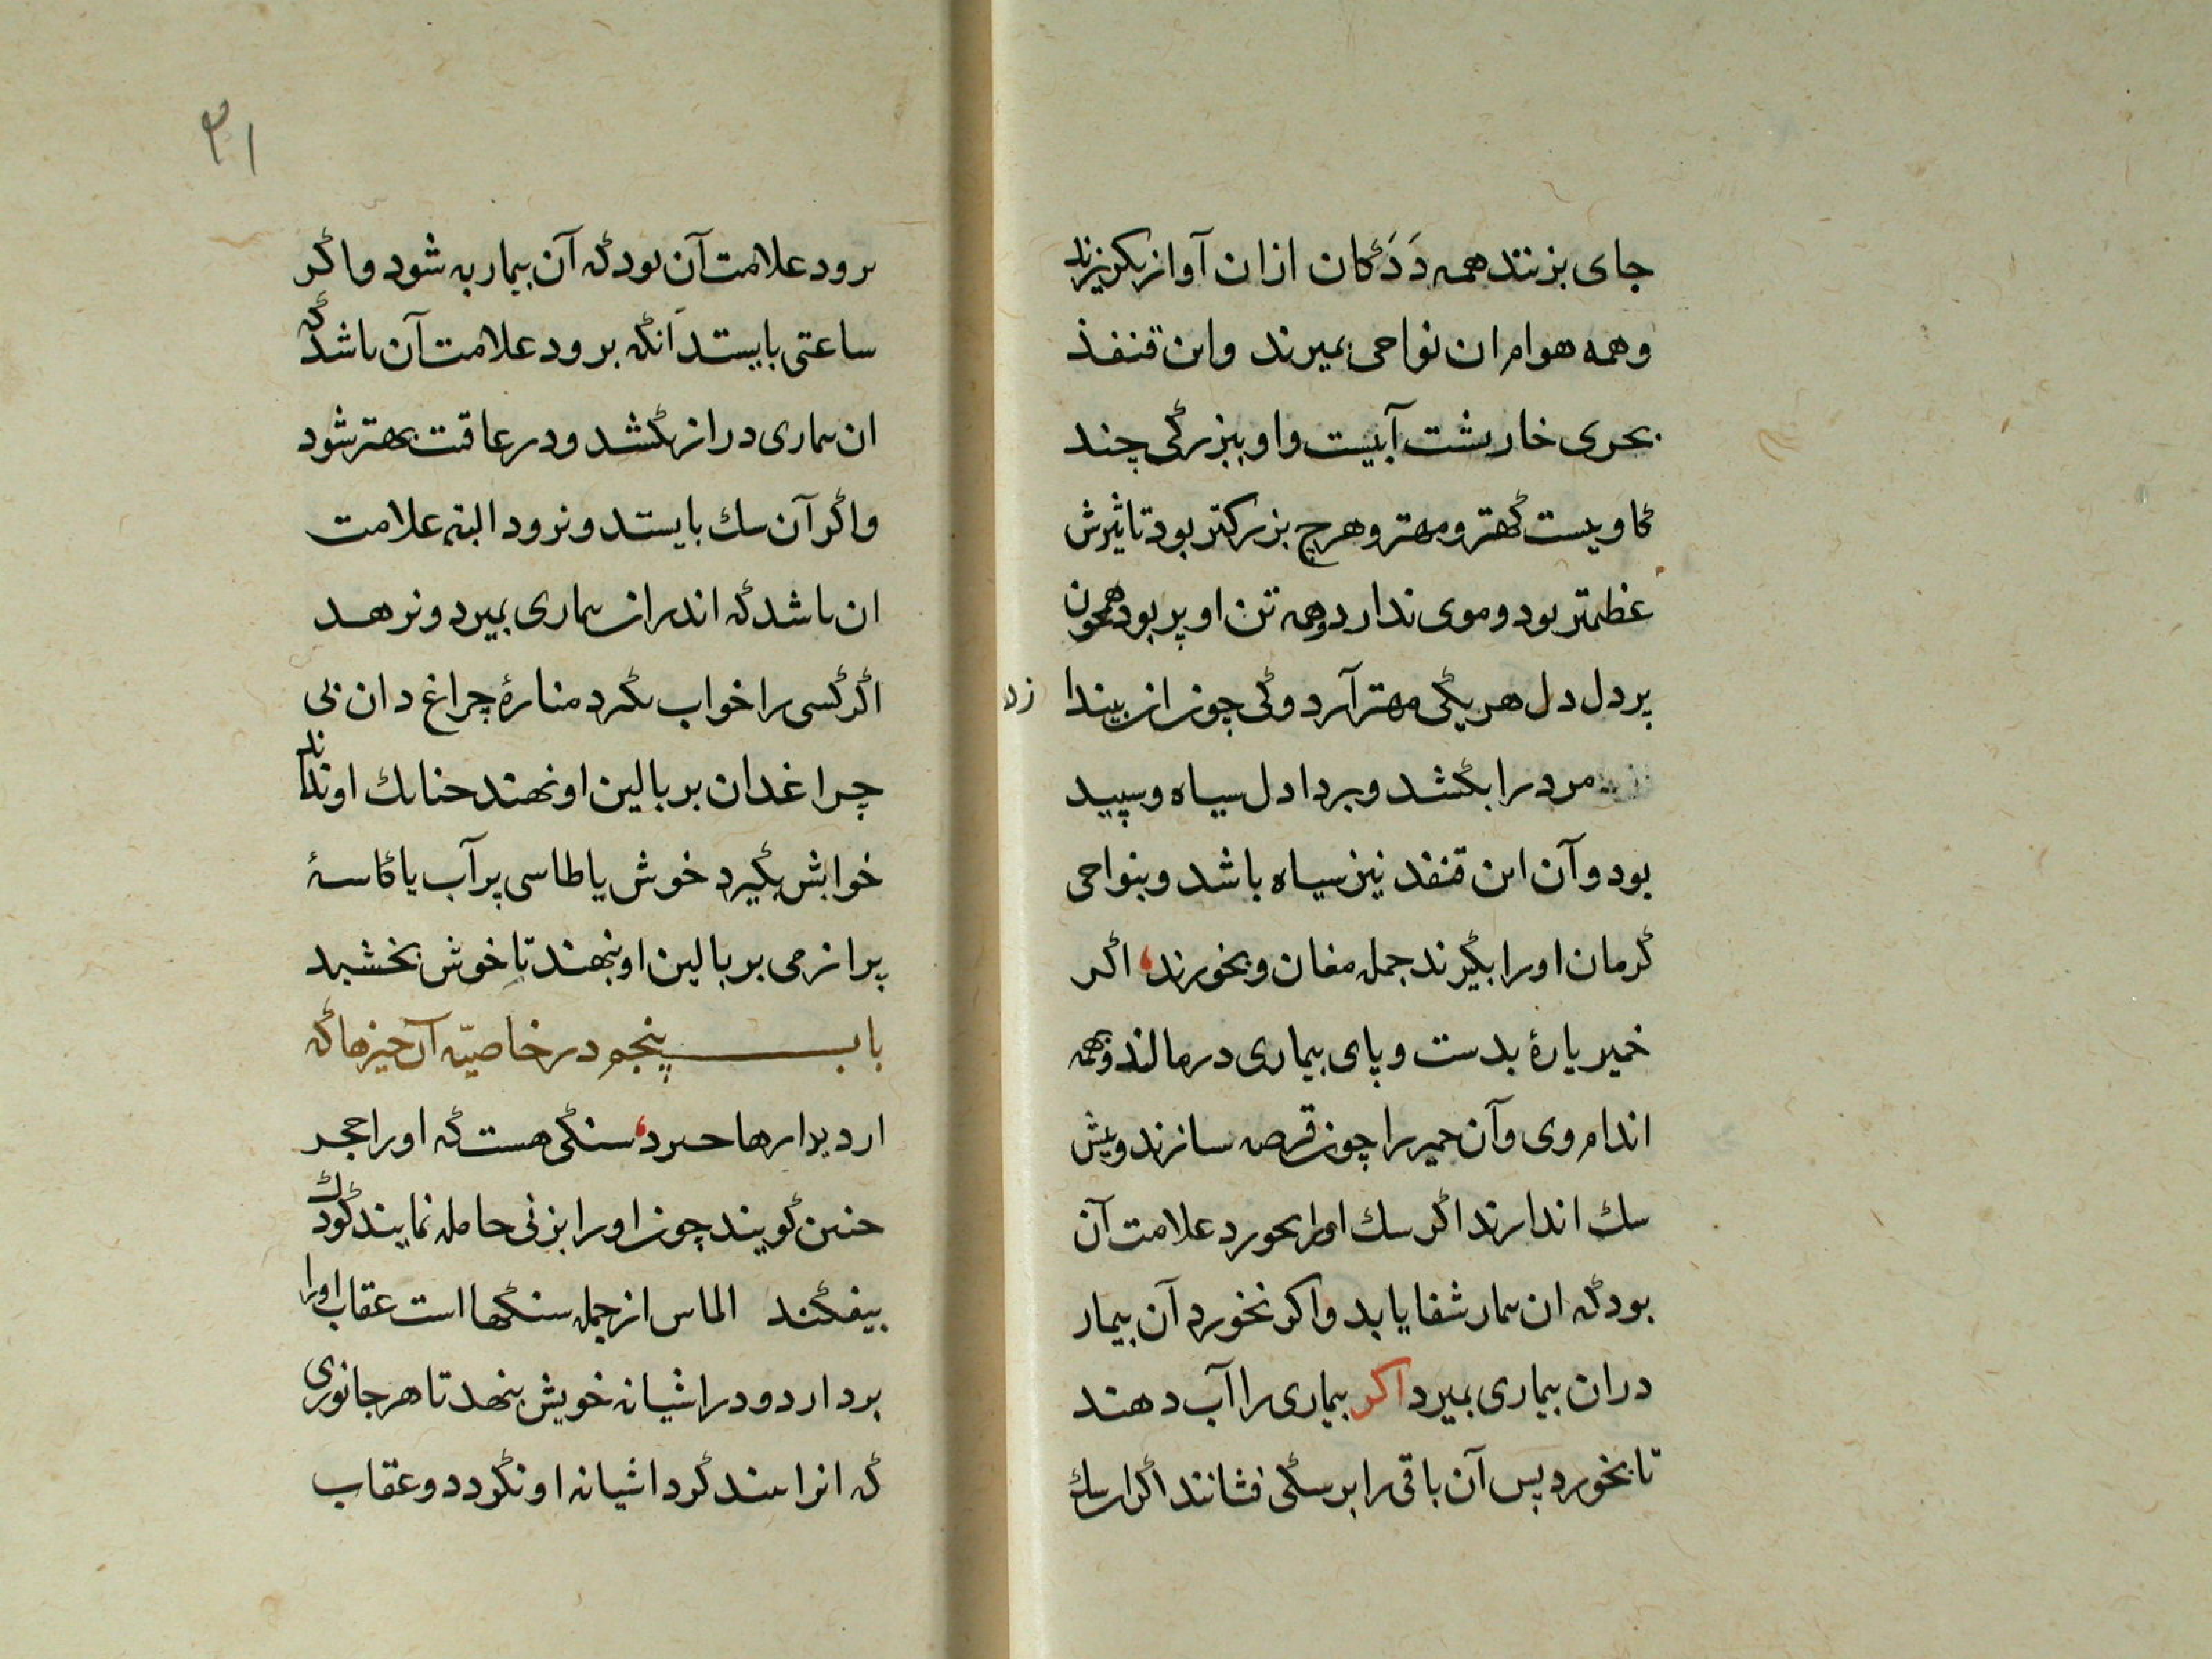 جای بزنند همه دَدَکان ازان آواز بکریزند
وهمه هوام ان نواحی بمیرند واین قنفذ
بحری خارپشت آبیست واو ببزرکی چند
کاویست کهتر ومهتر وهرچ بزرکتر بود تاثیرش
عظیمتر بود وموی ندارد وهمه تن او پر بود همچون
پر دل دل هریکی مهتر آرد وکی چون ان بیندا
مرد را بکشد وبردا دل سیاه وسپید
بود وآن این قنفذ نیز سیاه باشد وبنواحی
کرمان اورا بکیرند جمله مغان وبخورند، اکر
خمیر پارهٔ بدست وپای بیماری درمالند وهمه
اندام وی وآن خمیر را چون قرصه سازند وپیش
سک اندازند اکر سک اورا بخورد علامت آن
بود که ان بیمار شفا یابد واکر نخورد آن بیمار
دران بیماری بمیرد اکر بیماری را آب دهند
تا بخورد پس آن باقی را بر سکی فشانند اکر ان سک
زن
۳۱
برود علامت آن بود که آن بیمار به شود واکر
ساعتی بایستد آنکه برود علامت آن باشد که
ان بیماری دراز بکشد ودر عاقبت بهتر شود
واکر آن سک بایستد ونرود البته علامت
ان باشد که اندران بیماری بمیرد ونرهد
اکر کسی را خواب نکیرد منارهٔ چراغ دان بی
چراغدان بر بالین او نهند چنانک او نداند
خوابش بکیرد خوش یا طاسی پر آب یا کاسهٔ
پر از می بر بالین او بنهند تا خوش بخسبد
باب پنجم در خاصیّه آن چیزها که
از دیدارها خیزد، سنکی هست که اورا حجر
حنین کویند چون اورا بزنی حامله نمایند کودک
بیفکند الماس از جمله سنکها است عقاب اورا
بردارد ودر اشیانه خویش بنهد تا هر جانوری
که انرا بیند کرد اشیانه او نکردد وعقاب